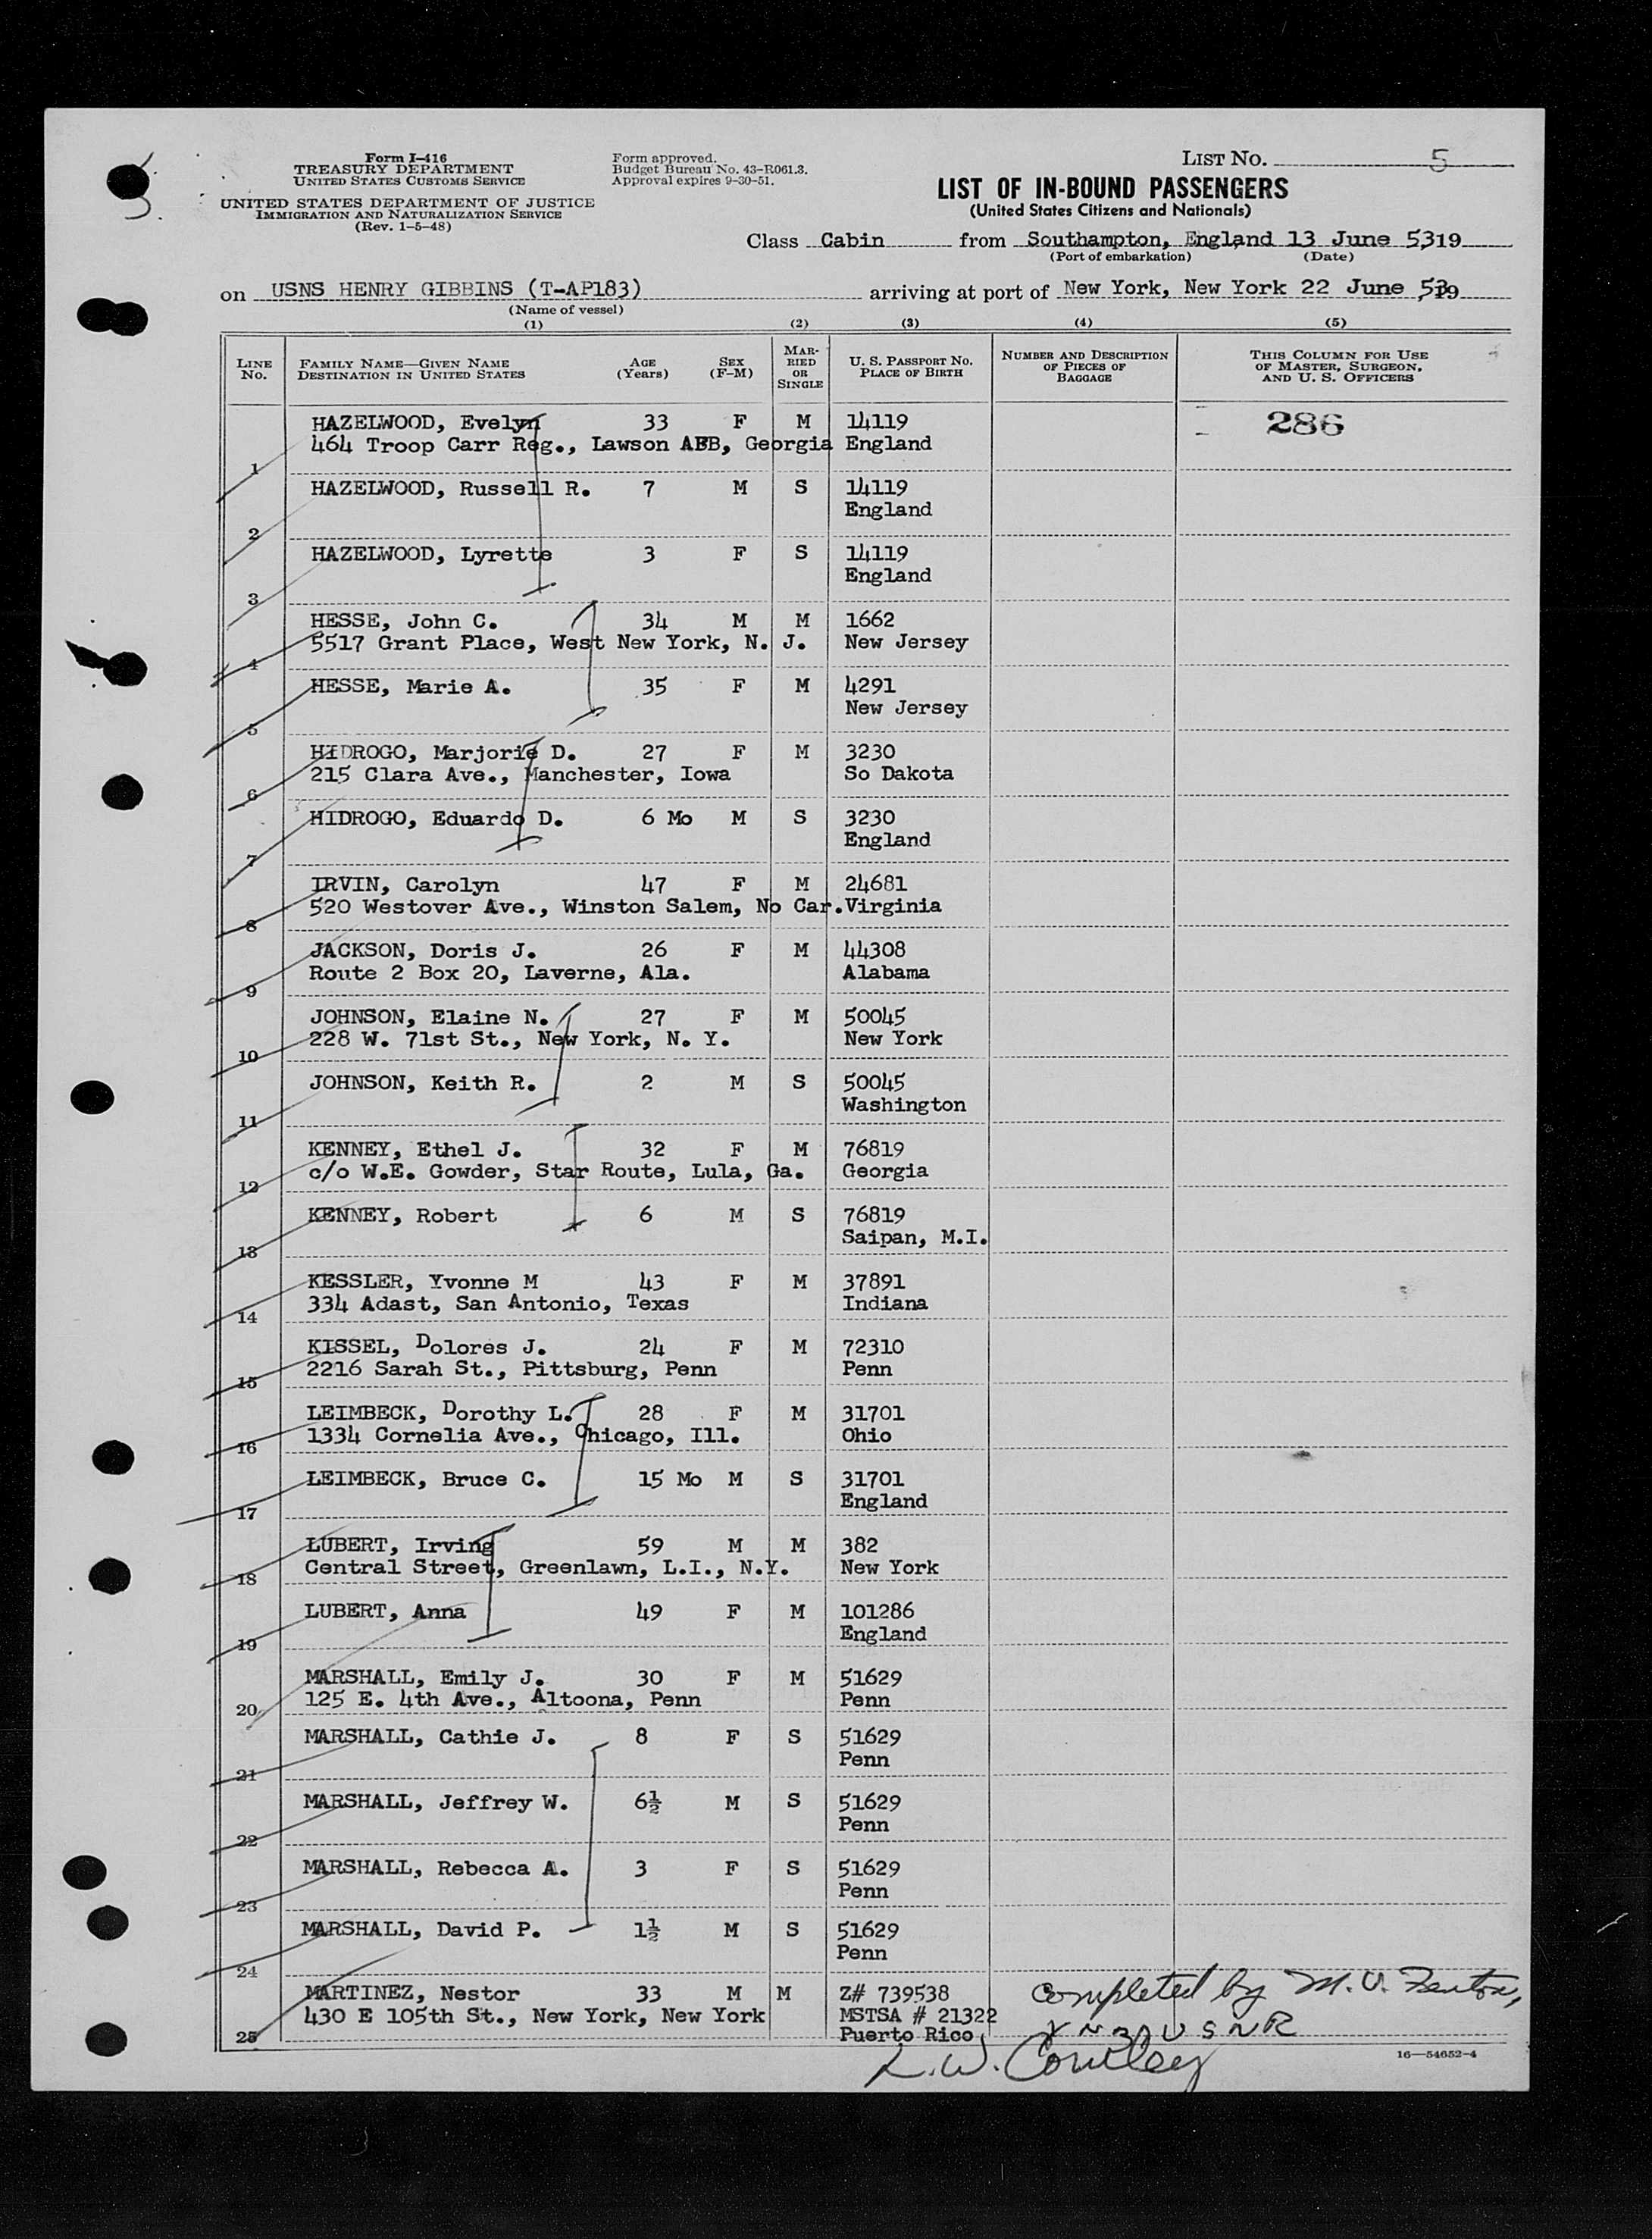 Form I-416
TREASURY DEPARTMENT
UNITED STATES CUSTOMS SERVICE
UNITED STATES DEPARTMENT OF JUSTICE
IMMIGRATION AND NATURALIZATION SERVICE
(Rev. 1-5-48)
Form approved.
Budget Bureau No. 43-R061.3.
Approval expires 9-30-51.
LIST No. 5
LIST OF IN-BOUND PASSENGERS
(United States Citizens and Nationals)
Class Cabin from Southampton, England 13 June 5319
(Port of embarkation) (Date)
on USNS HENRY GIBBINS (T-AP183) arriving at port of New York, New York 22 June 5319
(Name of vessel)
(1) (2) (3) (4) (5)
LINE No. FAMILY NAME—GIVEN NAME DESTINATION IN UNITED STATES AGE (Years) SEX (F-M) MARRIED OR SINGLE U. S. PASSPORT NO. PLACE OF BIRTH NUMBER AND DESCRIPTION OF PIECES OF BAGGAGE THIS COLUMN FOR USE OF MASTER, SURGEON, AND U. S. OFFICERS
HAZELWOOD, Evelyn 33 F M 14119 286
464 Troop Carr Reg., Lawson AFB, Georgia England
1
HAZELWOOD, Russell R. 7 M S 14119
England
2
HAZELWOOD, Lyrette 3 F S 14119
England
3
HESSE, John C. 34 M M 1662
5517 Grant Place, West New York, N. J. New Jersey
4
HESSE, Marie A. 35 F M 4291
New Jersey
5
HIDROGO, Marjorie D. 27 F M 3230
215 Clara Ave., Manchester, Iowa So Dakota
6
HIDROGO, Eduardo D. 6 Mo M S 3230
England
7
IRVIN, Carolyn 47 F M 24681
520 Westover Ave., Winston Salem, No Car. Virginia
8
JACKSON, Doris J. 26 F M 44308
Route 2 Box 20, Laverne, Ala. Alabama
9
JOHNSON, Elaine N. 27 F M 50045
228 W. 71st St., New York, N. Y. New York
10
JOHNSON, Keith R. 2 M S 50045
Washington
11
KENNEY, Ethel J. 32 F M 76819
c/o W.E. Gowder, Star Route, Lula, Ga. Georgia
12
KENNEY, Robert 6 M S 76819
Saipan, M.I.
13
KESSLER, Yvonne M 43 F M 37891
334 Adast, San Antonio, Texas Indiana
14
KISSEL, Dolores J. 24 F M 72310
2216 Sarah St., Pittsburg, Penn Penn
15
LEIMBECK, Dorothy L. 28 F M 31701
1334 Cornelia Ave., Chicago, Ill. Ohio
16
LEIMBECK, Bruce C. 15 Mo M S 31701
England
17
LUBERT, Irving 59 M M 382
Central Street, Greenlawn, L.I., N.Y. New York
18
LUBERT, Anna 49 F M 101286
England
19
MARSHALL, Emily J. 30 F M 51629
125 E. 4th Ave., Altoona, Penn Penn
20
MARSHALL, Cathie J. 8 F S 51629
Penn
21
MARSHALL, Jeffrey W. 6½ M S 51629
Penn
22
MARSHALL, Rebecca A. 3 F S 51629
Penn
23
MARSHALL, David P. 1½ M S 51629
Penn
24
MARTINEZ, Nestor 33 M M Z# 739538 Completed by M. V. Fenton,
430 E 105th St., New York, New York MSTSA # 21322
25 Puerto Rico YN3, USNR
16—54652-4